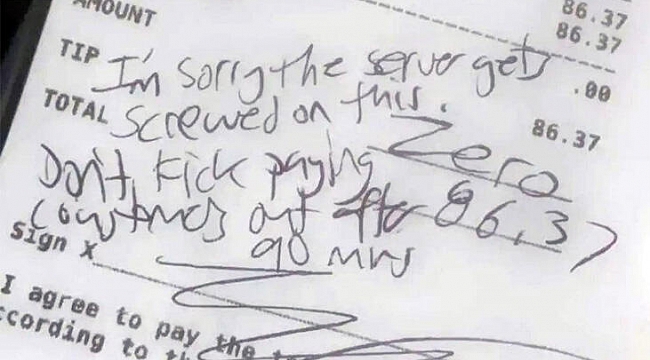 86.37
AMOUNT 86.37
TIP .00
I'm sorry the server gets
TOTAL 86.37
screwed on this.
Zero
Don't kick paying
customers out after 86.37
90 mins
Sign X
I agree to pay the
ccording to th